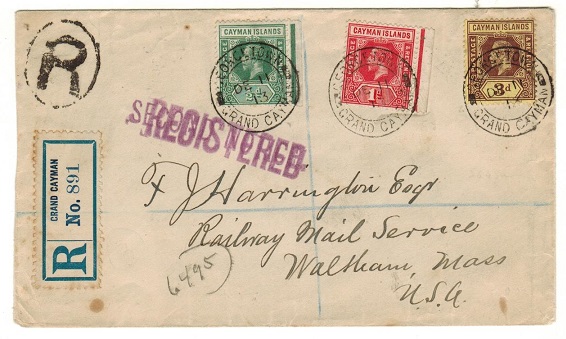 R
CAYMAN ISLANDS
POSTAGE
CAYMAN ISLANDS
POSTAGE
CAYMAN ISLANDS
POSTAGE
3d
GEORGETOWN
GRAND CAYMAN
GEORGETOWN
GRAND CAYMAN
GRAND CAYMAN
REGISTERED
R
GRAND CAYMAN
No. 891
F J Harrington Esqr
Railway Mail Service
Waltham, Mass
U.S.A.
6495